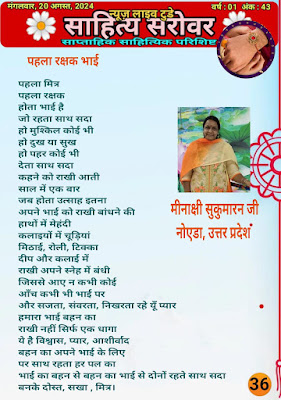 मंगलवार, 20 अगस्त, 2024
न्यूज़ लाइव टुडे
वर्ष : 01 अंक : 43
साहित्य सरोवर
साप्ताहिक साहित्यिक परिशिष्ट
पहला रक्षक भाई
पहला मित्र
पहला रक्षक
होता भाई है
जो रहता साथ सदा
हो मुश्किल कोई भी
हो दुख या सुख
हो पहर कोई भी
देता साथ सदा
कहने को राखी आती
साल में एक बार
जब होता उत्साह इतना
अपने भाई को राखी बांधने की
हाथों में मेहंदी
कलाइयों में चूड़ियां
मिठाई, रोली, टिक्का
दीप और कलाई में
राखी अपने स्नेह में बंधी
जिससे आए न कभी कोई
आँच कभी भी भाई पर
और सजता, संवरता, निखरता रहे यूँ प्यार
हमारा भाई बहन का
राखी नहीं सिर्फ एक धागा
ये है विश्वास, प्यार, आशीर्वाद
बहन का अपने भाई के लिए
पर साथ रहता हर पल का
भाई का बहन से बहन का भाई से दोनों रहते साथ सदा
बनके दोस्त, सखा , मित्र।
मीनाक्षी सुकुमारन जी
नोएडा, उत्तर प्रदेश
36